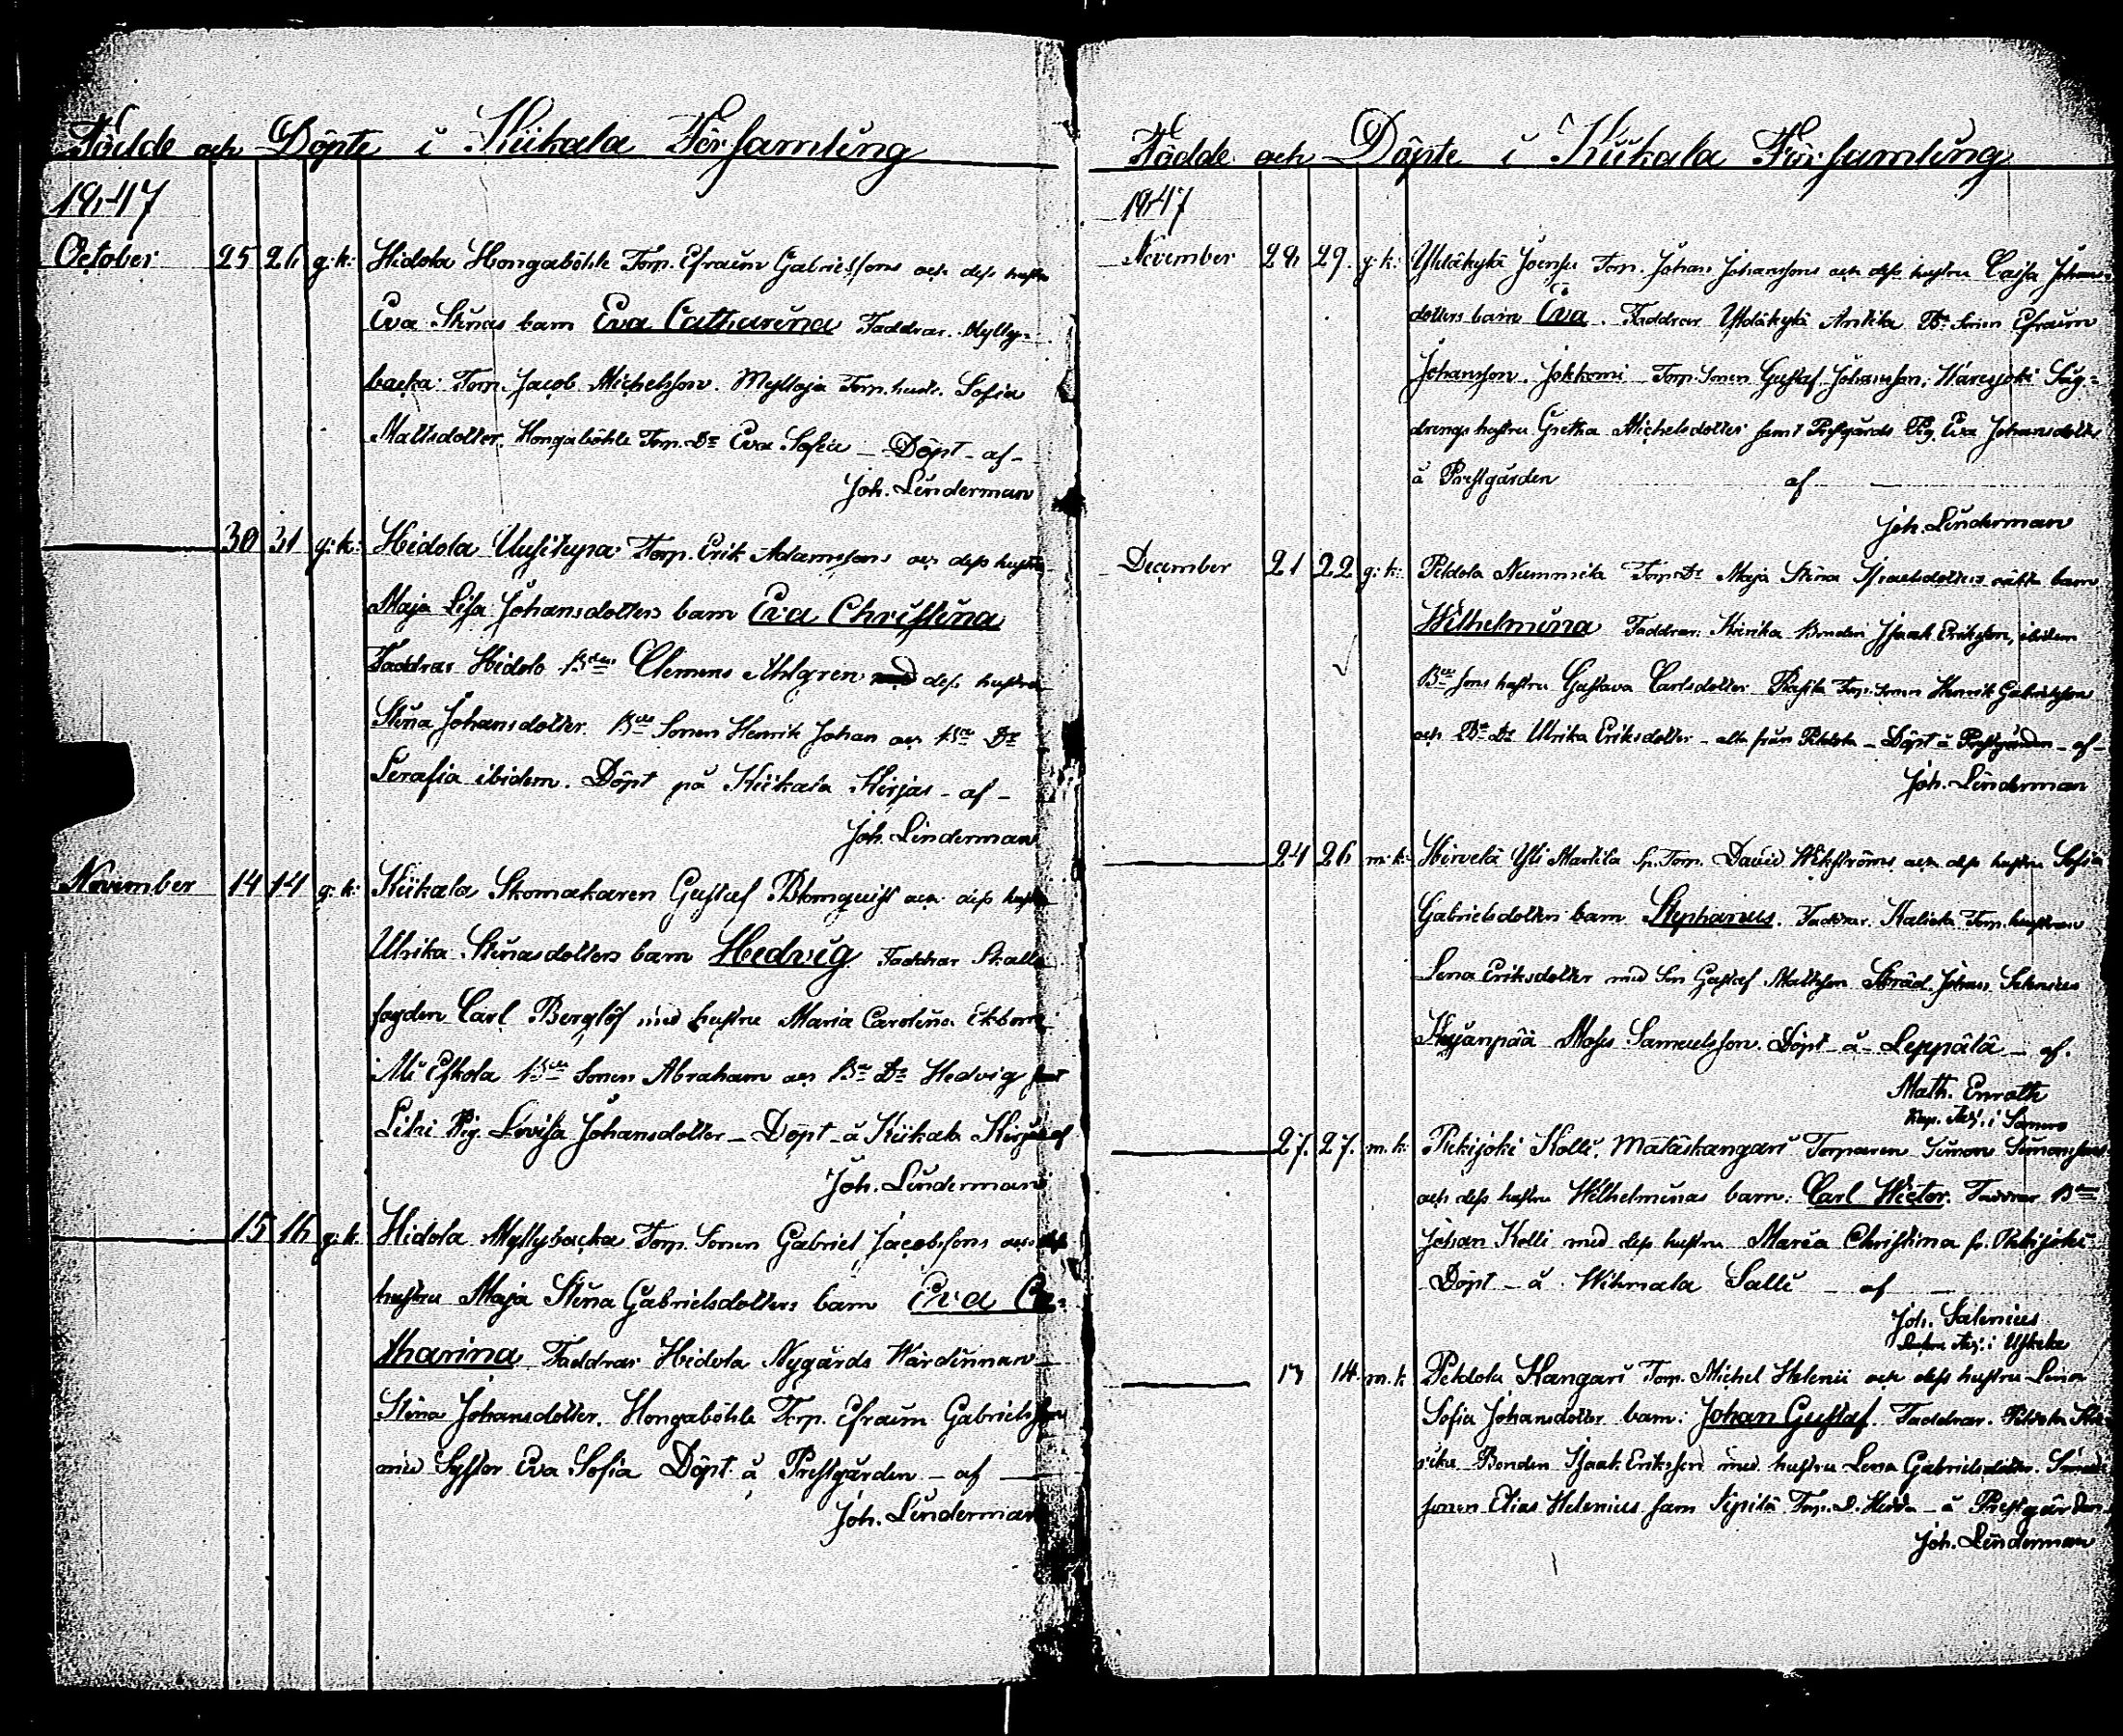 Födde och Döpte i Kiikala Församling
1847
October 25 26 q:k: Hidola Hongaböhle Torp. Efraim Gabrielssons och dess hustru
Eva Stinas barn Eva Catharina Faddrar. Mylly-
backa Torp. Jacob Michelsson. Myllyoja Torp. hustr. Sofia
Mattsdotter. Hongaböhle Torp. Dr Eva Sofia _ Döpt _ af _
Joh. Linderman
30 31 q:k: Hidola Uusitupa Torp. Erik Adamssons och dess hustru
Maja Lisa Johansdotters barn Eva Christina
Faddrar Hidola Bden Clemens Ahlgren med dess hustru
Stina Johansdotter. Bde Sonen Henrik Johan och Bde Dr
Serafia ibidem. Döpt på Kiikala Kirjas _ af _
Joh. Linderman
November 14 14 q:k: Kiikala Skomakaren Gustaf Blomquist och dess hustru
Ulrika Stinasdotters barn Hedvig Faddrar Skall-
fogden Carl Berglöf med hustru Maria Carolina Ekbom
Ali Eskola Bde Sonen Abraham och Bde Dr Hedvig samt
Pig. Lovisa Johansdotter _ Döpt _ å Kiikala Kirjas af
Joh. Linderman
15 16 q:k: Hidola Myllybacka Torp. Sonen Gabriel Jacobssons och dess
hustru Maja Stina Gabrielsdotters barn Eva Ca-
tharina Faddrar Hidola Nygårds Värdinnan
Stina Johansdotter. Hongaböhle Torp. Efraim Gabrielsson
med Syster Eva Sofia Döpt å Prestgården _ af _
Joh. Linderman
Födde och Döpte i Kiikala Församling
1847
November 28 29. q:k: Yltäkylä Joensu Torp. Johan Johanssons och dess hustru Caisa Johans-
dotters barn Eva. Faddrar Yltäkylä Anttila Bde Sonen Efraim
Johansson. Torp. Sonen Gustaf Johansson, Varesjoki Såg-
drengs hustru Gretha Michelsdotter samt Prestgårds Pig. Eva Johansdotter
å Prestgården af
Joh. Linderman
December 21 22 q:k: Pitdola Nummila Torp. Dr Maja Stina Isaaksdotters oäkta barn
Wilhelmina Faddrar: Kierikka Bonden Isaak Eriksson, ibidem
Bde Sons hustru Gustava Carlsdotter Torp. Sonen Henrik Gabrielsson
och Bde Dr Ulrika Eriksdotter _ alla från _ Döpt å Prestgården _ af _
Joh. Linderman
24 26 m:k: Hirvelä Yli Marttila Torp. David Wikströms och dess hustru Sofia
Gabrielsdotters barn Stephanus. Faddrar. Torp. hustrun
Lena Eriksdotter med Son Gustaf Mattsson Skräd. Johan Selenius
Moses Samuelsson. Döpt _ å _ Leppälä _ af.
Math. Enroth
Kap. Adj. i Somero
27. 27. m.k: Rekijoki Kolli. Mätäskangari Torparen Simon Simonssons
och dess hustru Wilhelminas barn. Carl Wictor. Faddrar Bden
Johan Kolli med dess hustru Maria Christina fr. Rekijoki
Döpt _ å Salli _ af
Joh. Salenius
Adj. i Uskela
13 14 m.k. Kangari Torp. Michel Helenii och dess hustru Lina
Sofia Johansdotter barn: Johan Gustaf. Faddrar.
Bonden Isaak Eriksson med hustru Lena Gabrielsdotter.
sonen Elias Helenius samt Sipilä Torp. D. Hedda _ å Prestgården
Joh. Linderman